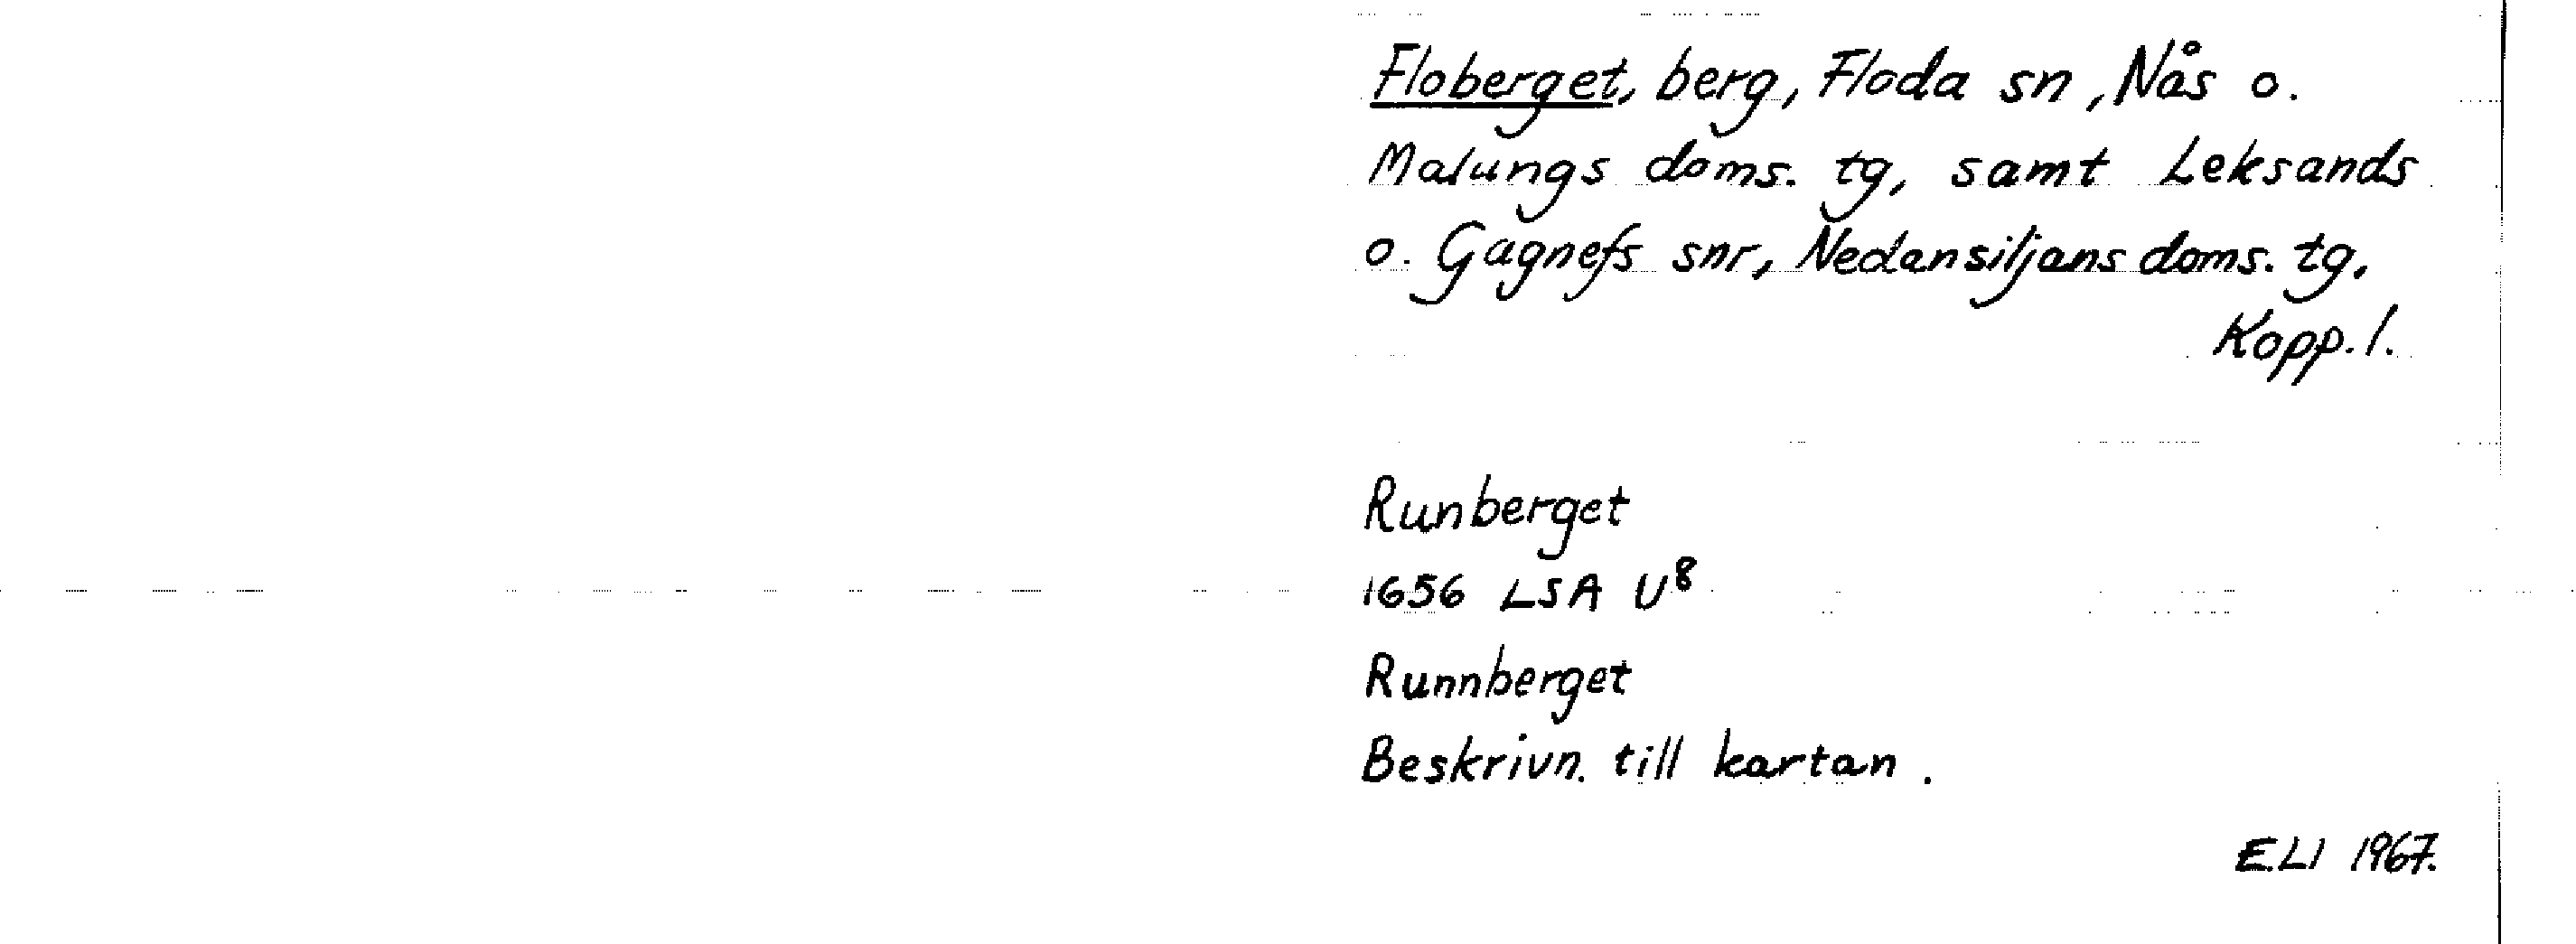 Floberget, berg, Floda sn, Nås o.
Malungs doms. tg, samt Leksands
o. Gagnefs snr, Nedansiljans doms. tg,
Kopp. l.
Runberget
1656 LSA U⁸
Runnberget
Beskrivn. till kartan.
E.LI 1967.